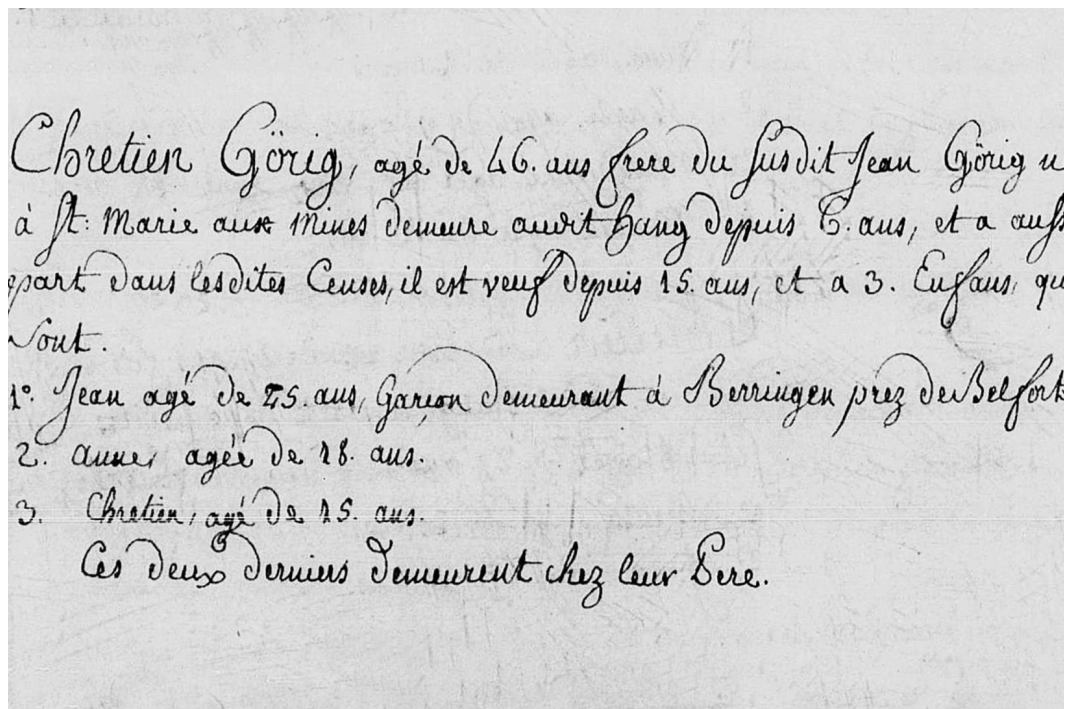 Chretien Görig, agé de 46. ans frere du susdit Jean Görig n
à St: Marie aux Mines demeure audit hang depuis 6. ans, et a auss
part dans lesdites Censes, il est veuf depuis 15. ans, et a 3. Enfans, qu
sont.
1º. Jean agé de 25. ans, Garcon demeurant à Berringen préz de Belfort
2. anne, agée de 18. ans.
3. Chretien, agé de 15. ans.
Ces deux derniers demeurent chez leur Pere.